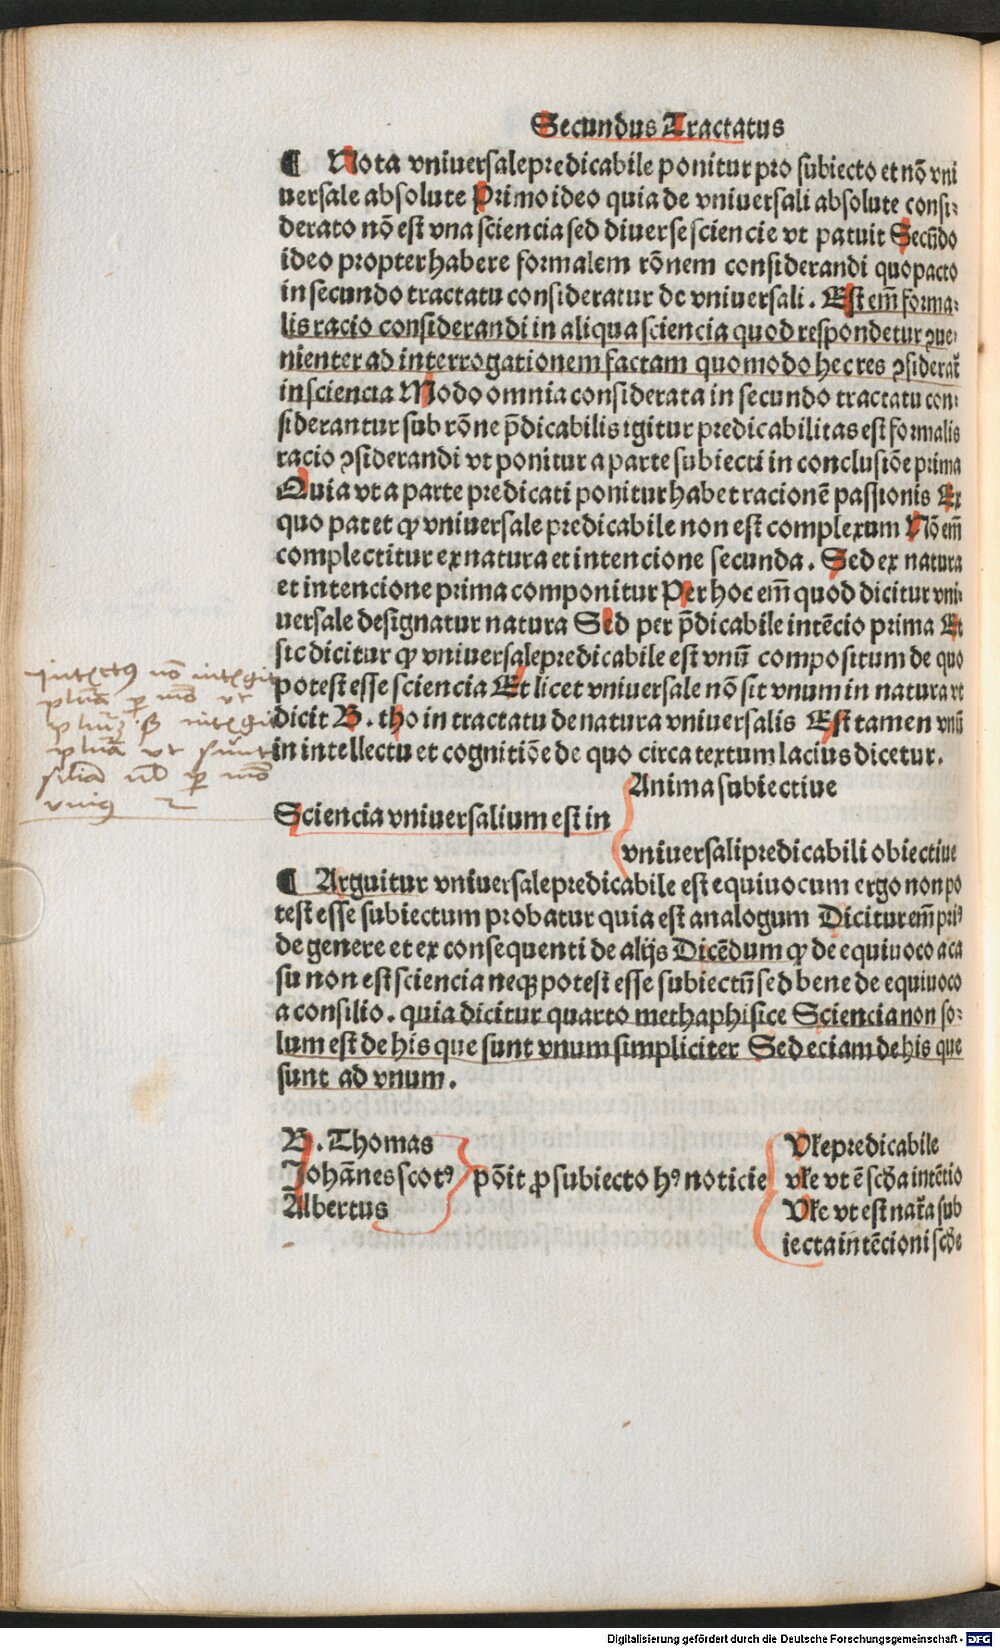 Secundus Tractatus
¶ Nota vniuersalepredicabile ponitur pro subiecto et nō vni
uersale absolute Primo ideo quia de vniuersali absolute consi⸗
derato nō est vna sciencia sed diuerse sciencie vt patuit Secūdo
ideo propter habere formalem rōnem considerandi quo pacto
in secundo tractatu consideratur de vniuersali. Est em̄ forma⸗
lis racio considerandi in aliqua sciencia quod respondetur ꝯue⸗
nienter ad interrogationem factam quomodo hec res ꝯsiderat᷑
in sciencia Modo omnia considerata in secundo tractatu con⸗
siderantur sub rōne p̄dicabilis igitur predicabilitas est formalis
racio ꝯsiderandi vt ponitur a parte subiecti in conclusiōe prima
Quia vt a parte predicati ponitur habet racionē passionis Ex
quo patet ꝙ vniuersale predicabile non est complexum Nō em̄
complectitur ex natura et intencione secunda. Sed ex natura
et intencione prima componitur Per hoc em̄ quod dicitur vni⸗
uersale designatur natura Sed per p̄dicabile intēcio prima Et
sic dicitur ꝙ vniuersalepredicabile est vnū compositum de quo
potest esse sciencia Et licet vniuersale nō sit vnum in natura vt
dicit B. tho in tractatu de natura vniuersalis Est tamen vnū
in intellectu et cognitiōe de quo circa textum lacius dicetur.
nō
pluā ꝑ mō vt
pluā vt sunt
ꝑ mō
vniꝰ
Anima subiectiue
Sciencia vniuersalium est in
vniuersali predicabili obiectiue
¶ Arguitur vniuersalepredicabile est equiuocum ergo non po
test esse subiectum probatur quia est analogum Dicitur em̄ priꝰ
de genere et ex consequenti de alijs Dicēdum ꝙ de equiuoco a ca
su non est sciencia neqꝫ potest esse subiectū sed bene de equiuoco
a consilio. quia dicitur quarto methaphisice Sciencia non so⸗
lum est de his que sunt vnum simpliciter Sed eciam de his que
sunt ad vnum.
B. Thomas
Johānes scotꝰ
Albertus
pōit ꝓ subiecto hꝰ noticie
Vl̄e predicabile
vl̄e vt ē scd̄a intētio
Vl̄e vt est nat᷑a sub
iecta intēcioni scd̄e
Digitalisierung gefördert durch die Deutsche Forschungsgemeinschaft - DFG